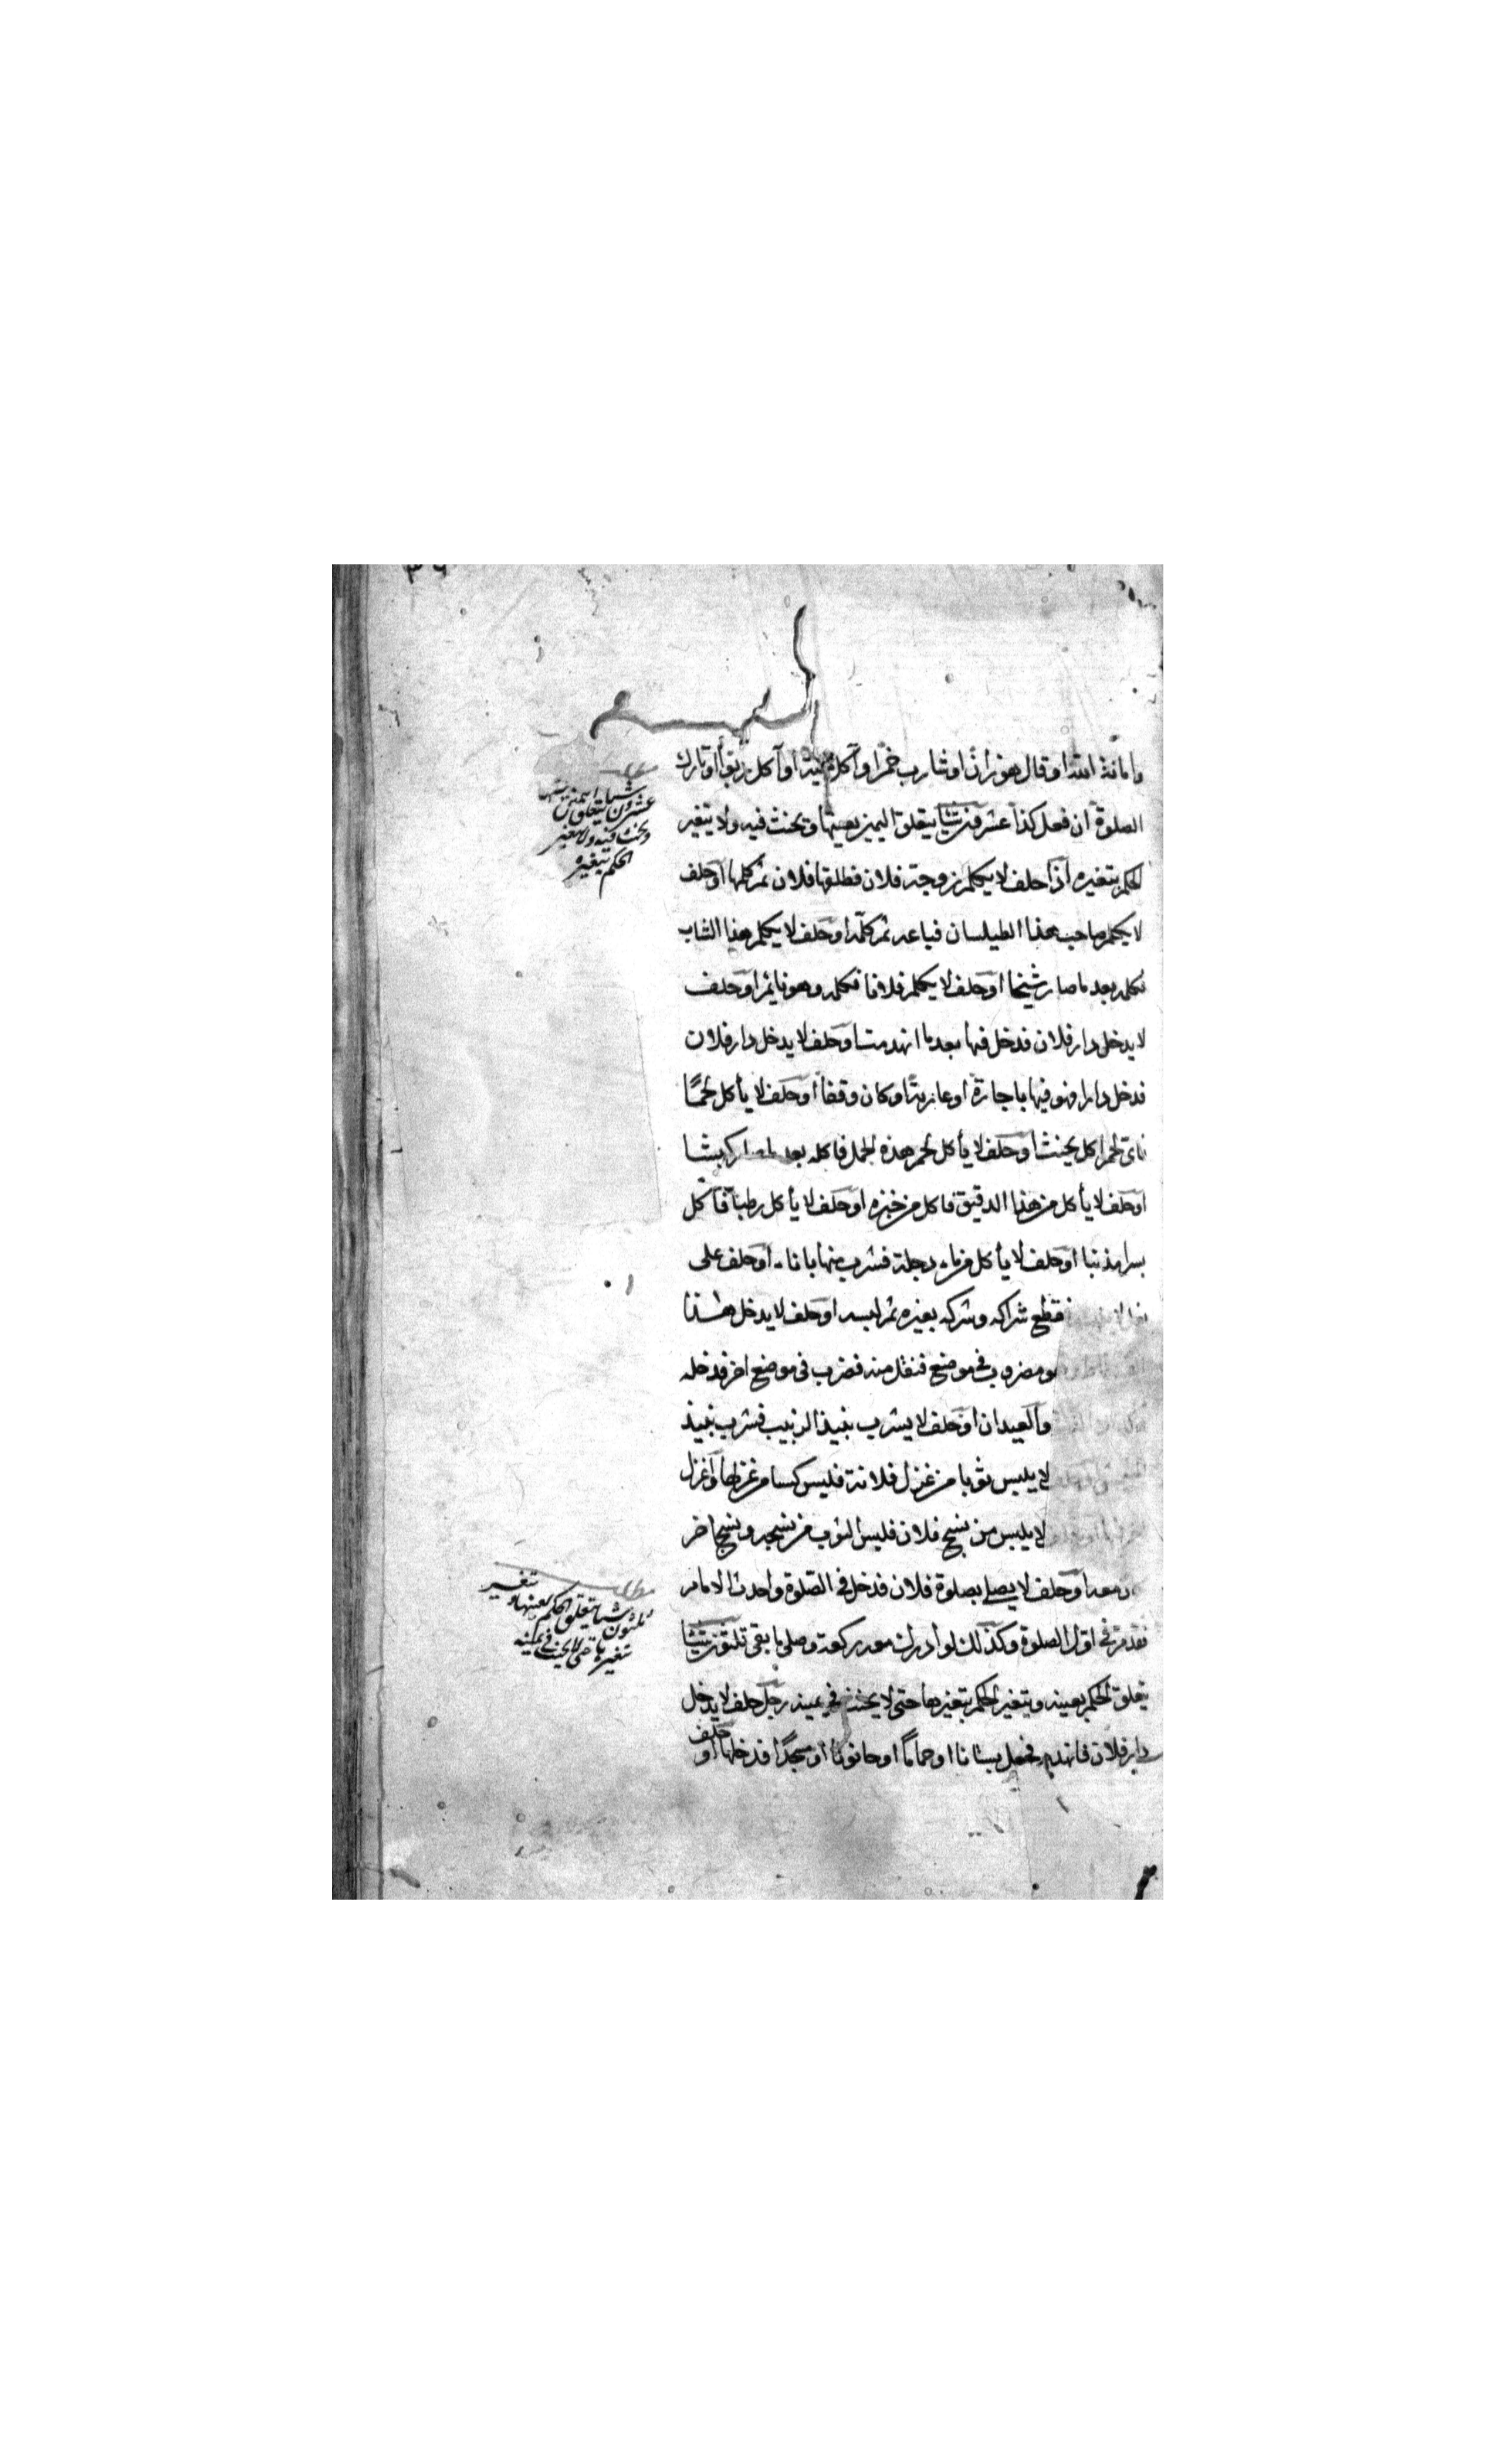 وامانة الله او قال هو زان او شارب خمرا او آكل ميتة او آكل ربوا او تارك
الصلوة ان فعل كذا عشرون شيئا يتعلق اليمين بعينها ويحنث فيه ولا يتغير
الحكم بتغيره اذا حلف لا يكلم زوجة فلان فطلقها فلان ثم كلمها او حلف
لا يكلم صاحب هذا الطيلسان فباعه ثم كلمه او حلف لا يكلم هذا الشاب
فكلمه بعد ما صار شيخا او حلف لا يكلم فلانا فكلمه وهو نايم او حلف
لا يدخل دار فلان فدخل فيها بعد ما انهدمت او حلف لا يدخل دار فلان
فدخل دارا هو فيها باجارة او عارية او كان وقفا او حلف لا يأكل لحمًا
فاى لحم اكل يحنث او حلف لا يأكل لحم هذه الجمل فاكله بعد كبشا
او حلف لا يأكل من هذا الدقيق فاكل من خبزه او حلف لا يأكل رطبا فاكل
بسرا مذنبا او حلف لا يأكل من ماء دجلة فشرب منها باناء او حلف على
فقطع شراكه وشركه بغيره ثم لبسه او حلف لا يدخل هذا
مضروب في موضع فنقل منه فضرب في موضع اخر فدخله
والعيدان او حلف لا يشرب نبيذ الزبيب فشرب نبيذ
لا يلبس ثوبا من غزل فلانة فلبس كسا من غزلها وغزل
لا يلبس من نسج فلان فلبس الثوب من نسجه ونسج اخر
معه او حلف لا يصلي بصلوة فلان فدخل في الصلوة واحدث الامام
فقدمه في اول الصلوة وكذلك لو ادرك معه ركعة وصلى ما بقى ثلثون شيئا
يتعلق الحكم بعينه ويتغير الحكم بتغيرها حتى لا يحنث في يمينه رجل حلف لا يدخل
دار فلان فانهدم فجعل بستانا او حماما او حانوتا او مسجدًا فدخلها او حلف
مطلب
عشرون شيئا يتعلق اليمين بعينها
ويحنث فيه ولا يتغير
الحكم بتغيره
مطلب
ثلثون شيئا يتعلق الحكم بعينها و تغير
بتغيره حتى لا يحنث في يمينه